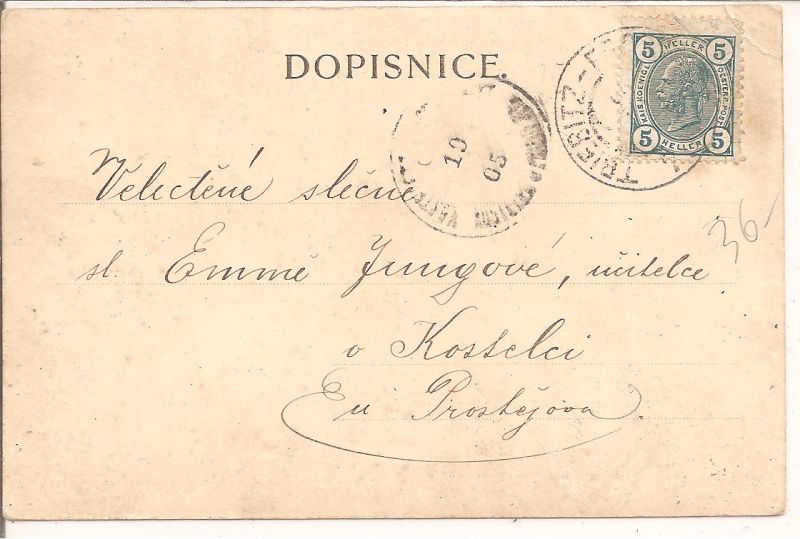 DOPISNICE.
5 HELLER 5
KAIS. KOENIGL. OESTERR. POST
5 HELLER 5
TRIEBITZ
19
05
Velectěné slečně
sl. Emmě Jungové, učitelce
v Kostelci
u Prostějova.
36-